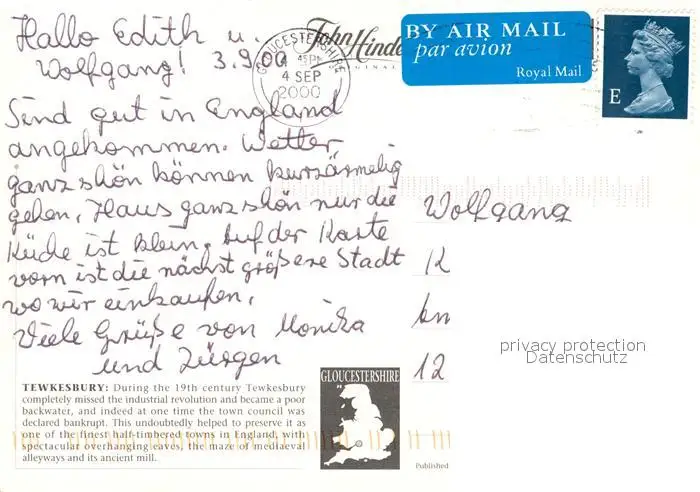 Hallo Edith u.
Wolfgang! 3.9.00
Sind gut in England
angekommen. Wetter
ganz schön können kurzärmelig
gehen, Haus ganz schön nur die
Küche ist klein. Auf der Karte
vorn ist die nächst größere Stadt
wo wir einkaufen.
Viele Grüße von Monika
und Jürgen
GLOUCESTERSHIRE
4 SEP
2000
John Hinde
ORIGINAL
BY AIR MAIL
par avion
Royal Mail
E
Wolfgang
K
12
privacy protection
Datenschutz
TEWKESBURY: During the 19th century Tewkesbury
completely missed the industrial revolution and became a poor
backwater, and indeed at one time the town council was
declared bankrupt. This undoubtedly helped to preserve it as
one of the finest half-timbered towns in England, with
spectacular overhanging eaves, the maze of mediaeval
alleyways and its ancient mill.
GLOUCESTERSHIRE
Published